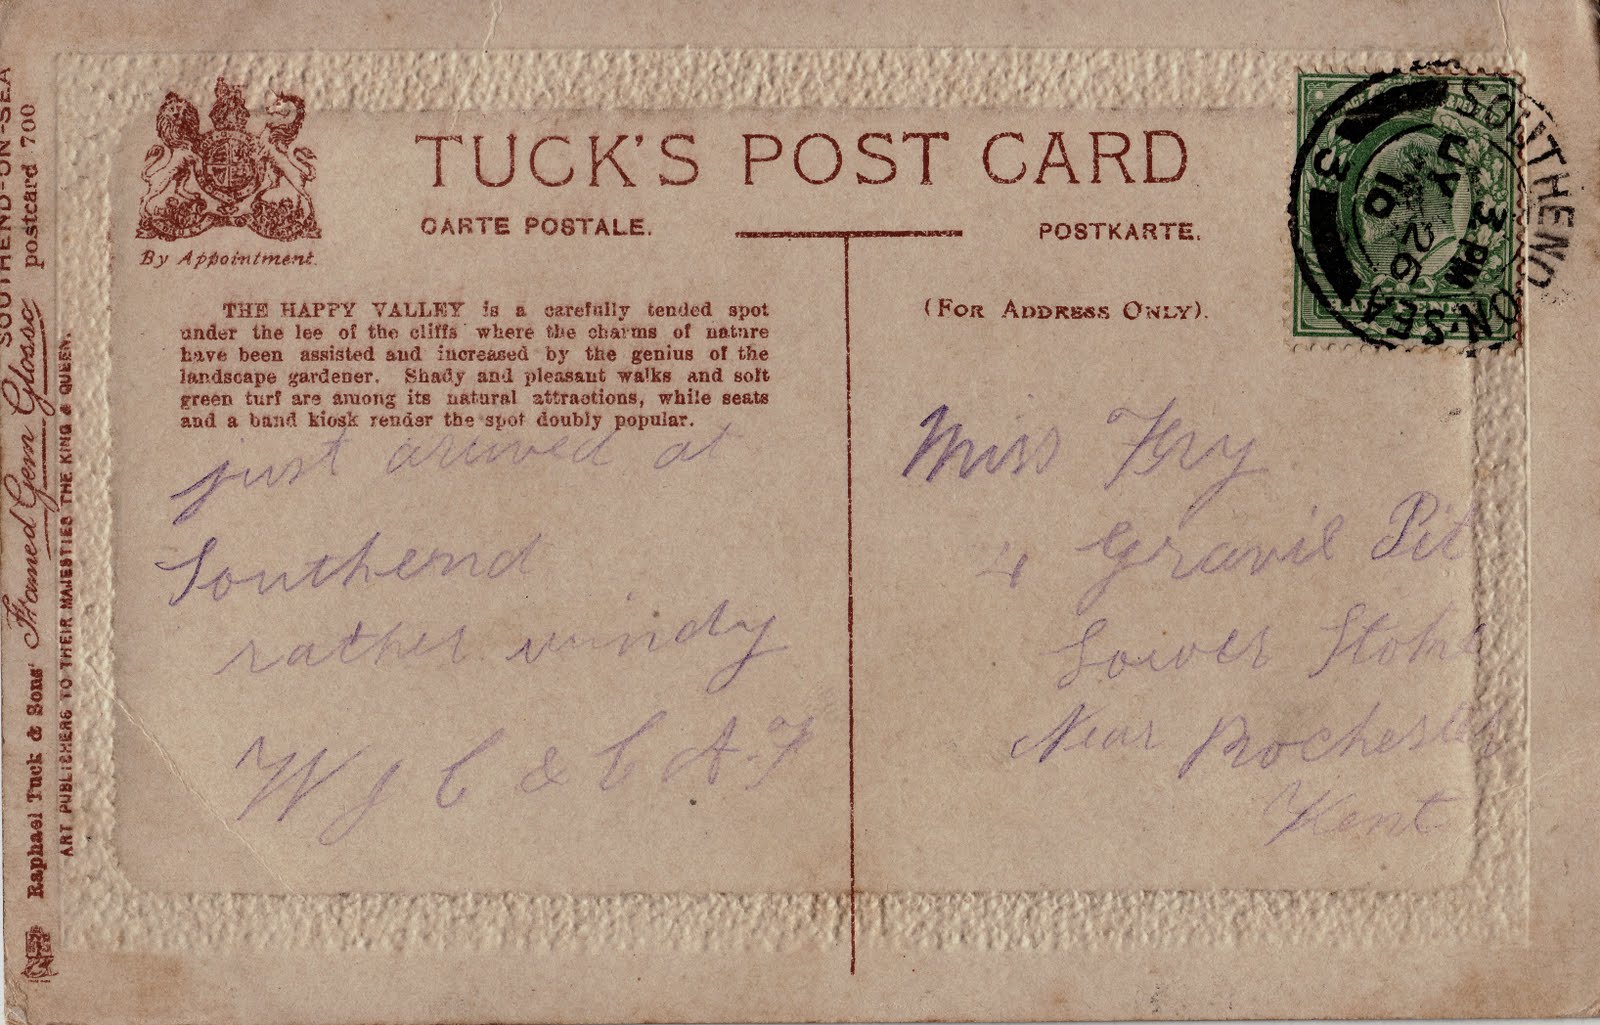 TUCK'S POST CARD
CARTE POSTALE.
POSTKARTE.
By Appointment.
(FOR ADDRESS ONLY).
THE HAPPY VALLEY is a carefully tended spot
under the lee of the cliffs where the charms of nature
have been assisted and increased by the genius of the
landscape gardener. Shady and pleasant walks and soft
green turf are among its natural attractions, while seats
and a band kiosk render the spot doubly popular.
just arived at
Southend
rather windy
W J C & C A F
Miss Fry
4 Gravil Pit
Lower Stoke
Near Rochester
Kent
SOUTHEND-ON-SEA
3 PM
JY 26
10
3
Raphael Tuck & Sons' Framed Gem Glosso SOUTHEND-ON-SEA
postcard 700
ART PUBLISHERS TO THEIR MAJESTIES THE KING & QUEEN.